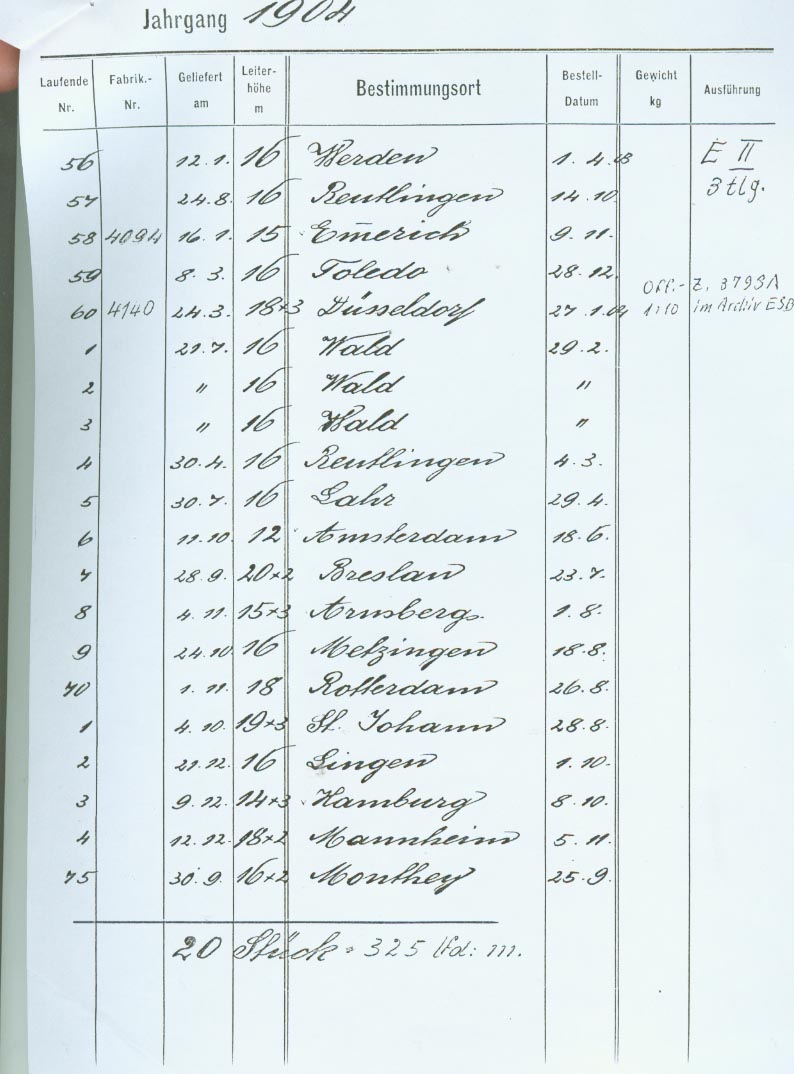 Jahrgang 1904
Laufende Nr. Fabrik.-Nr. Geliefert am Leiterhöhe m Bestimmungsort Bestell-Datum Gewicht kg Ausführung
56 12.1. 16 Werden 1.4.03 E II
57 24.8. 16 Reutlingen 14.10. 3 tlg.
58 4094 16.1. 15 Em̄erich 9.11.
59 8.3. 16 Toledo 28.12.
60 4140 24.3. 18+3 Düsseldorf 27.1.04 Off.-Z. 3793A
1:10 im Archiv ESB
1 21.7. 16 Wald 29.2.
2 " 16 Wald "
3 " 16 Wald "
4 30.4. 16 Reutlingen 4.3.
5 30.7. 16 Lahr 29.4.
6 11.10. 12 Amsterdam 18.6.
7 28.9. 20+2 Breslau 23.7.
8 4.11. 15+3 Arnsberg. 1.8.
9 24.10. 16 Metzingen 18.8.
70 1.11. 18 Rotterdam 26.8.
1 4.10. 19+3 St. Johann 28.8.
2 21.12. 16 Lingen 1.10.
3 9.12. 14+3 Hamburg 8.10.
4 12.12. 18+2 Mannheim 5.11.
75 30.9. 16+2 Monthey 25.9.
20 Stück = 325 lfd: m.